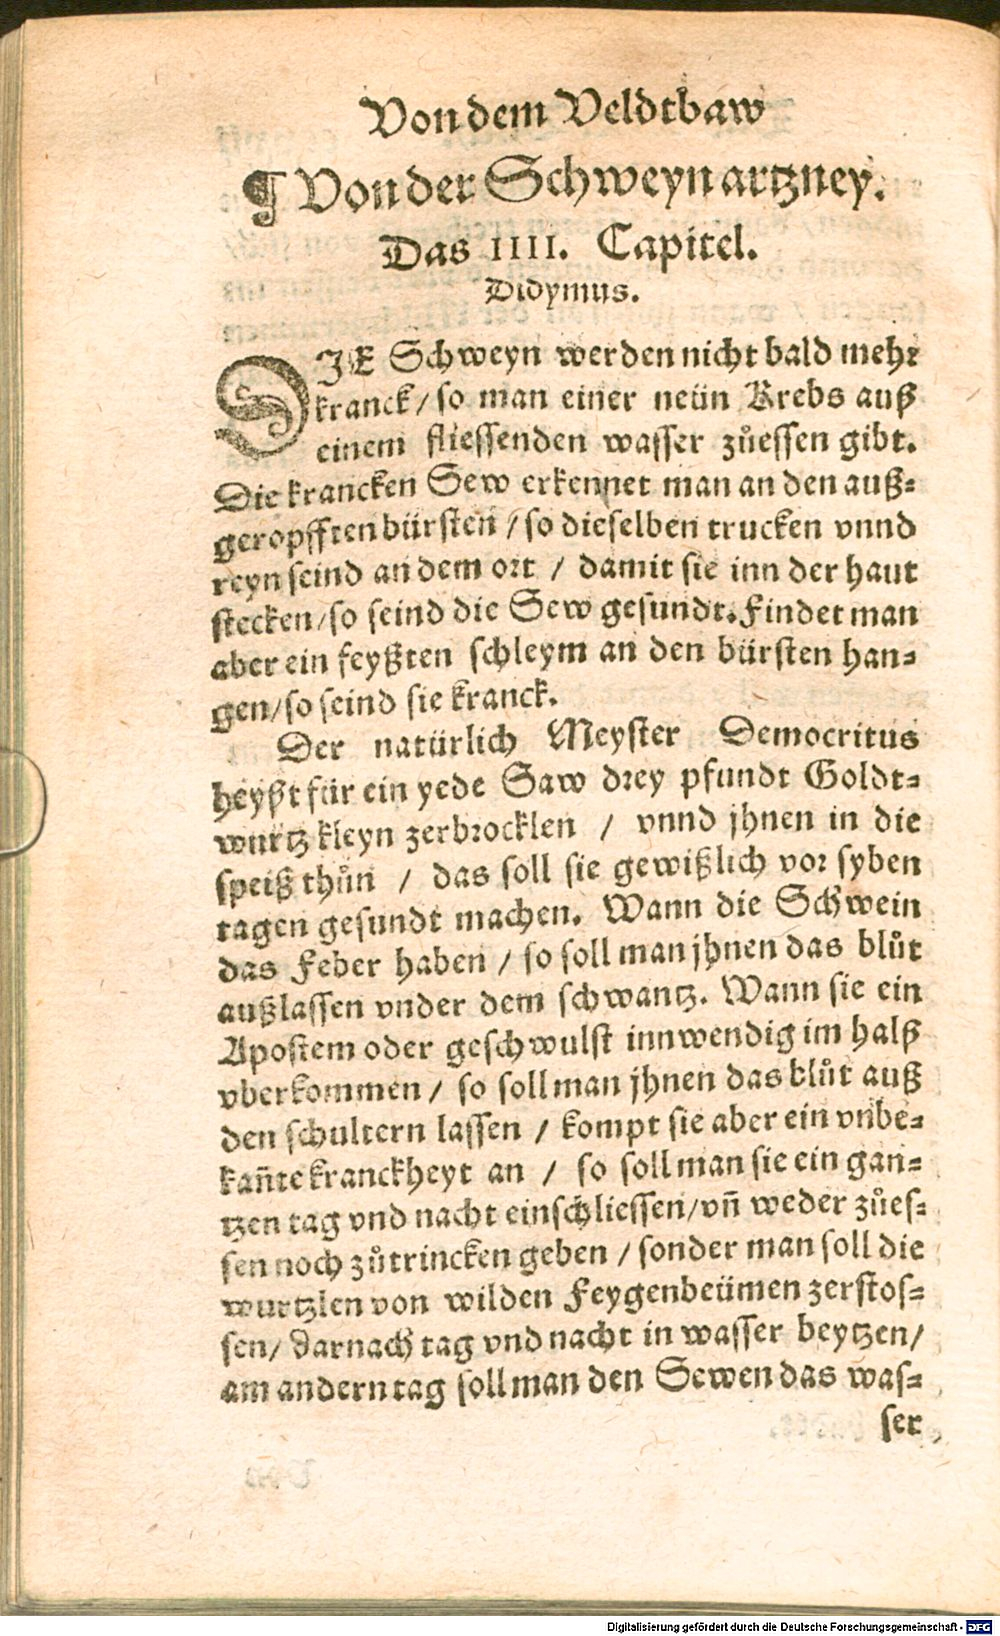 Von dem Veldtbaw
¶ Von der Schweyn artzney.
Das IIII. Capitel.
Didymus.
DIE Schweyn werden nicht bald mehr
kranck / so man einer neün Krebs auß
einem fliessenden wasser zůessen gibt.
Die krancken Sew erkennet man an den auß=
geropfften bürsten / so dieselben trucken vnnd
reyn seind an dem ort / damit sie inn der haut
stecken / so seind die Sew gesundt. Findet man
aber ein feyßten schleym an den bürsten han=
gen / so seind sie kranck.
Der natürlich Meyster Democritus
heyßt für ein yede Saw drey pfundt Goldt=
wurtz kleyn zerbrocklen / vnnd jhnen in die
speiß thůn / das soll sie gewißlich vor syben
tagen gesundt machen. Wann die Schwein
das Feber haben / so soll man jhnen das blůt
außlassen vnder dem schwantz. Wann sie ein
Apostem oder geschwulst innwendig im halß
vberkommen / so soll man jhnen das blůt auß
den schultern lassen / kompt sie aber ein vnbe=
kañte kranckheyt an / so soll man sie ein gan=
tzen tag vnd nacht einschliessen / vñ weder zůes=
sen noch zůtrincken geben / sonder man soll die
wurtzlen von wilden Feygenbeümen zerstos=
sen / darnach tag vnd nacht in wasser beytzen /
am andern tag soll man den Sewen das was=
ser
Digitalisierung gefördert durch die Deutsche Forschungsgemeinschaft - DFG